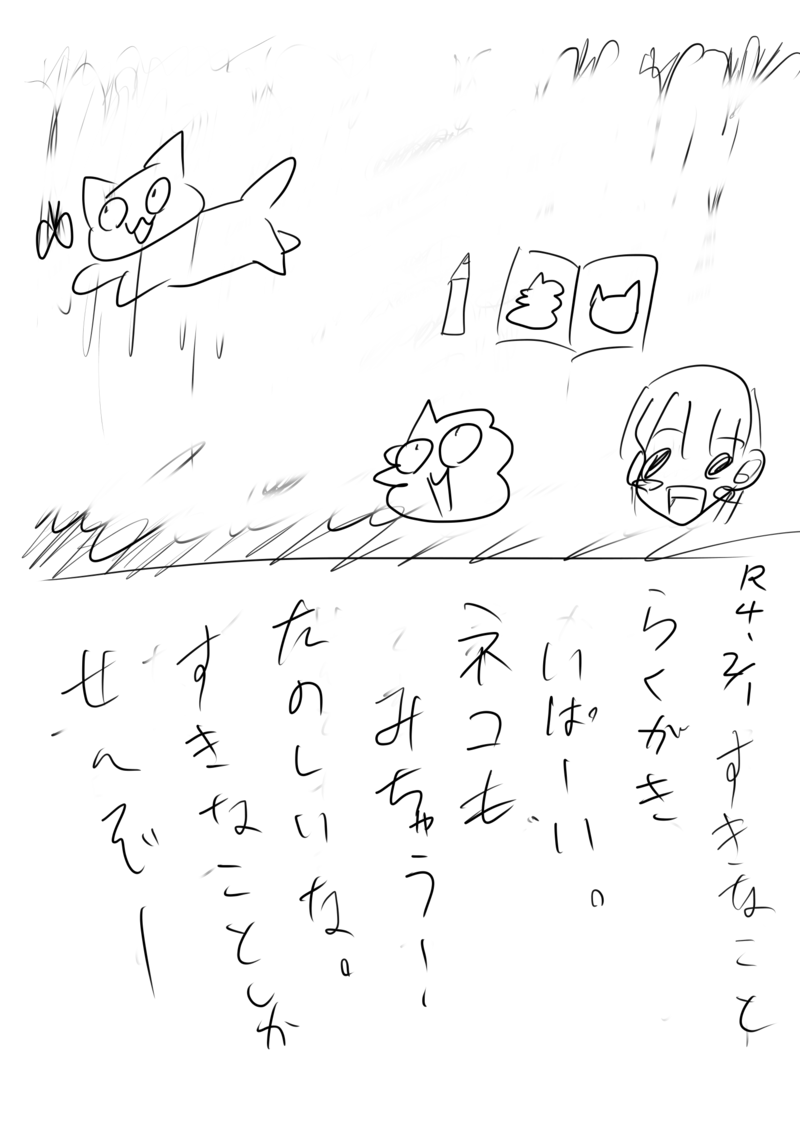 R4.2/1 すきなこと
らくがき
いぱーい。
ネコも
みちゃうー
たのしいな。
すきなことしか
せんぞー